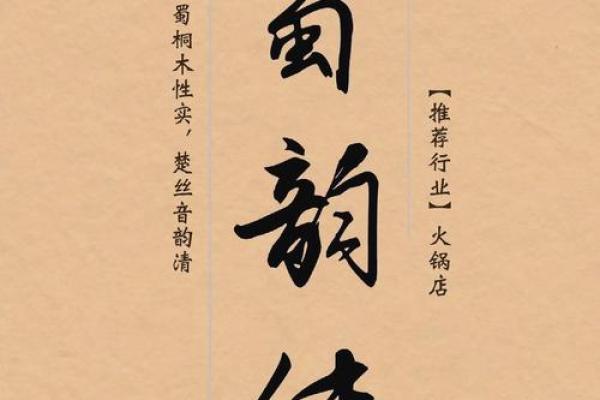 【推荐行业】火锅店
蜀韵
蜀桐木性实，楚丝音韵清